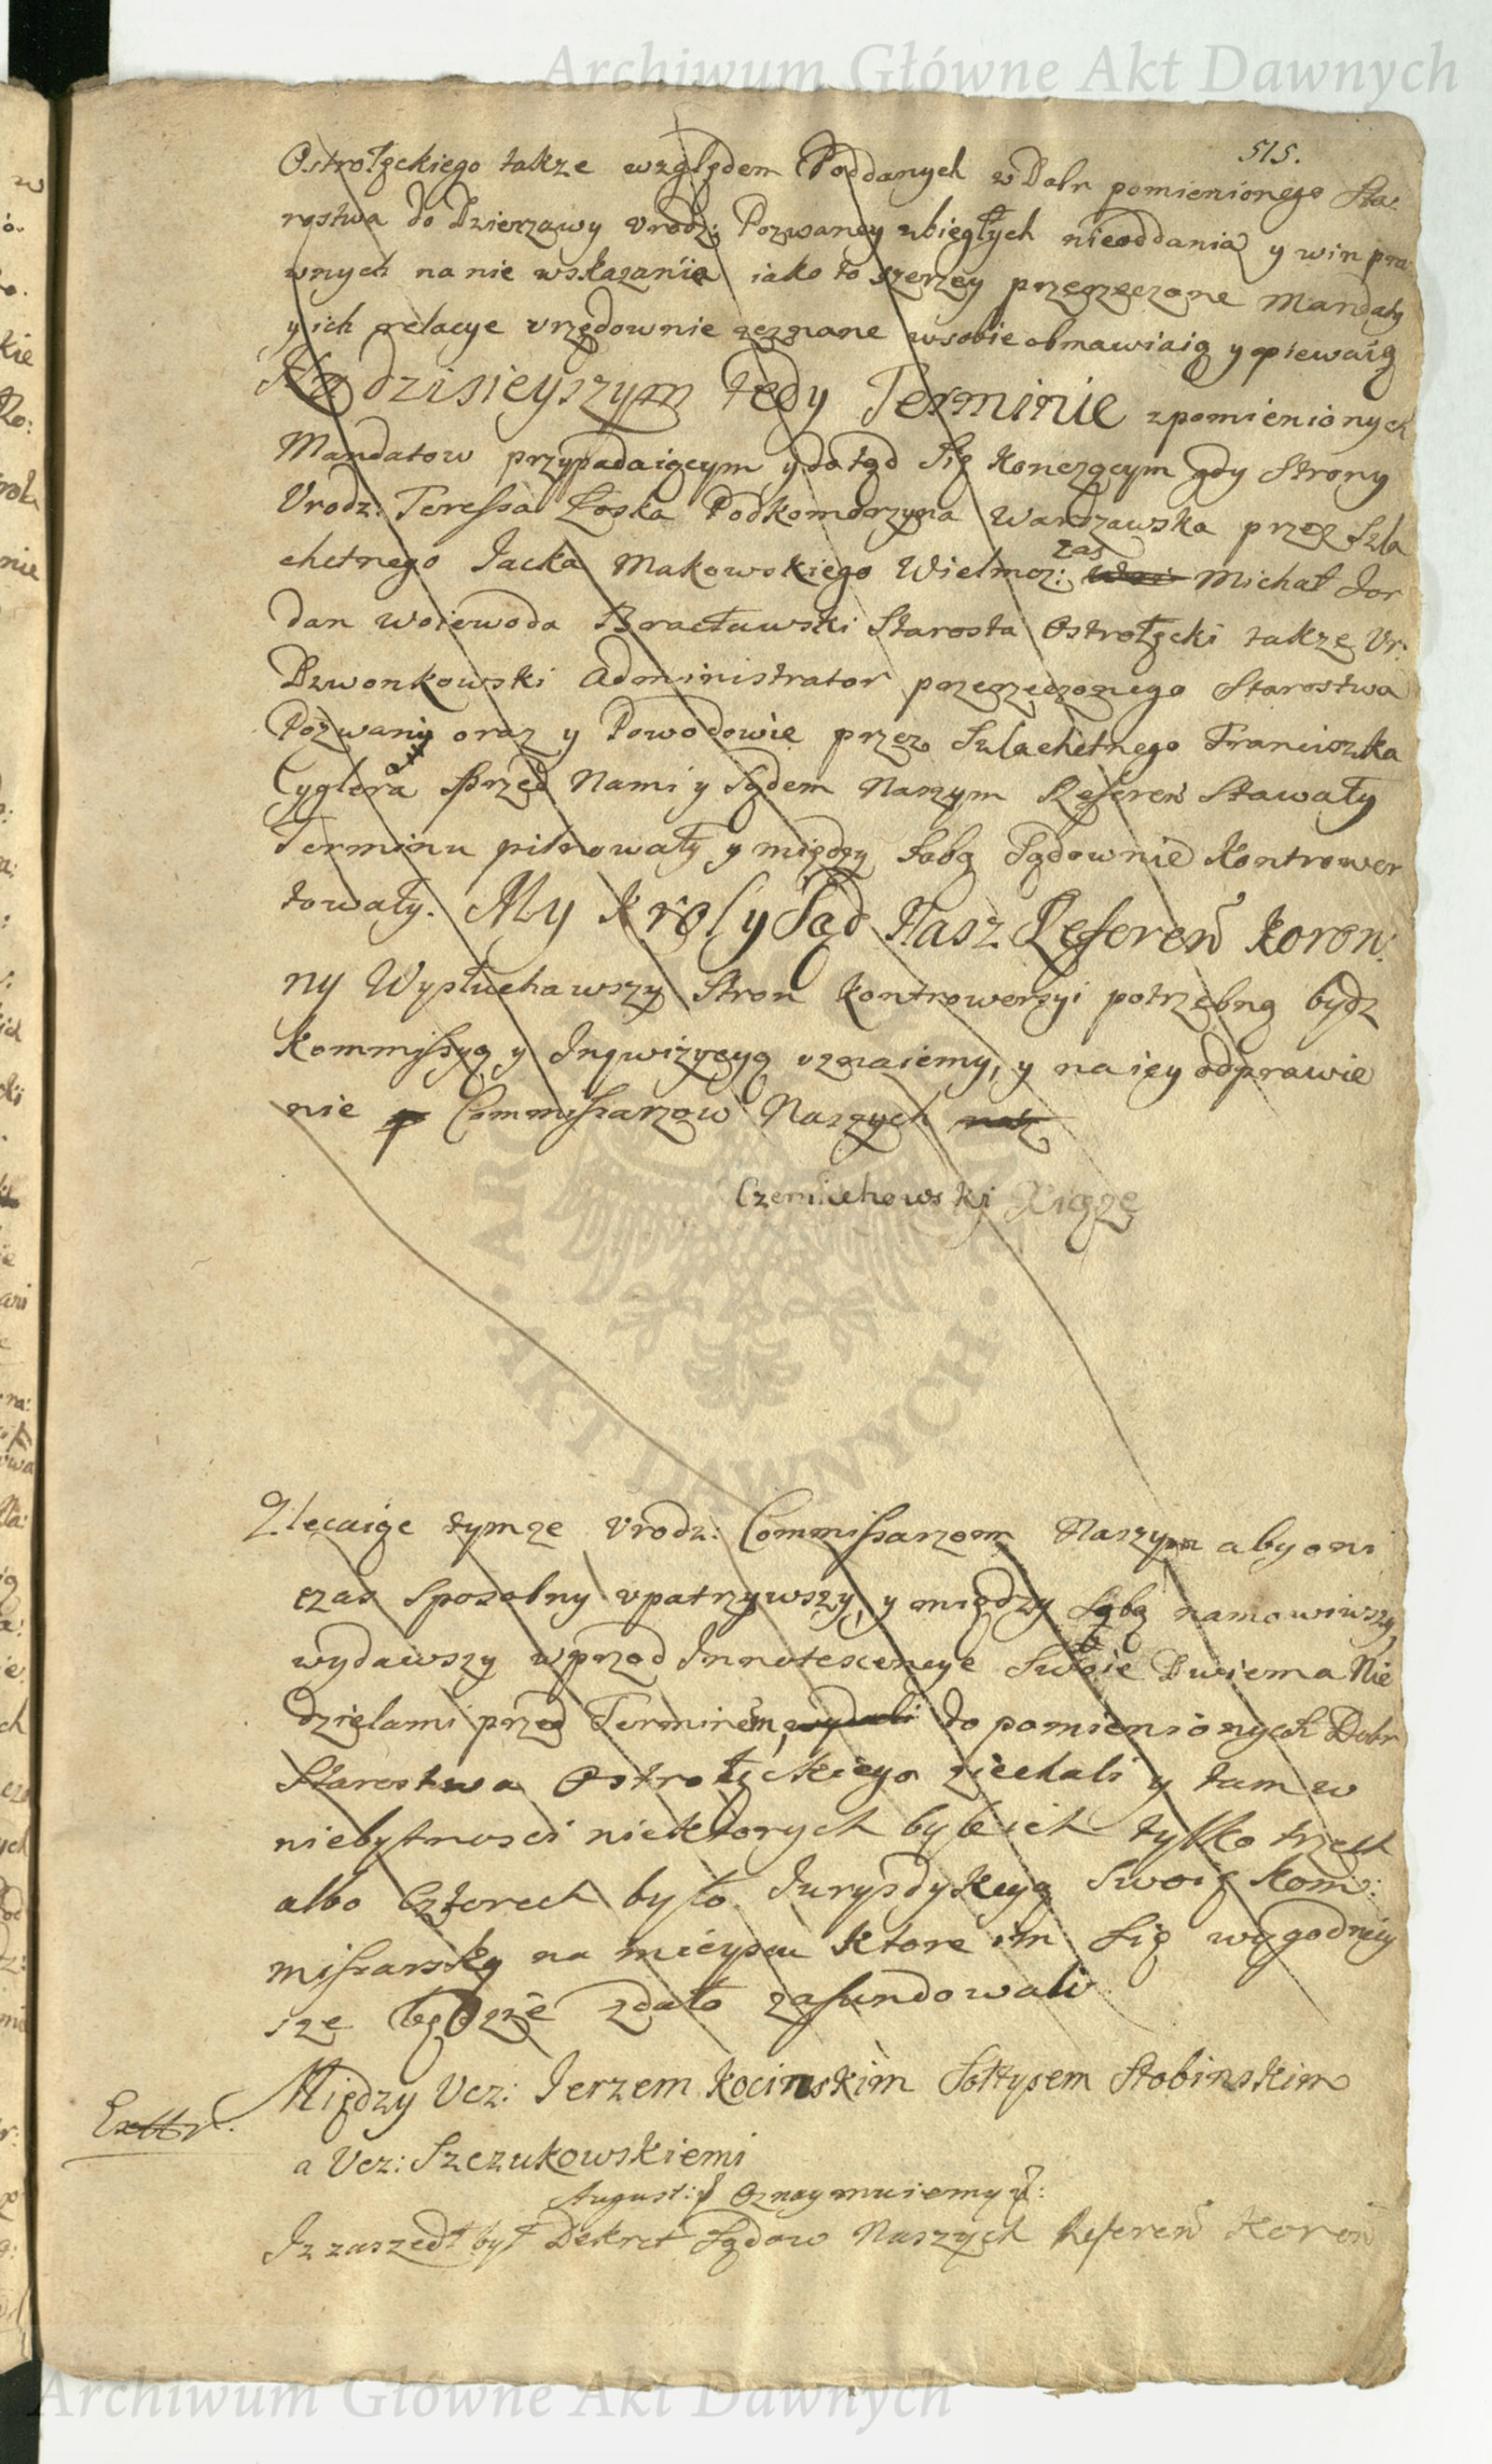 Archiwum Główne Akt Dawnych
515.
Ostrołęckiego takze względem Poddanych w Dobr pomienionego Sta:
rostwa do Dzierzawy Urodz: Pozwaney zbiegłych nieoddania y win pra
wnych na nie wskazania iako to szerzey przerzeczone Mandaty
y ich relacye urzędownie zeznane w sobie obmawiaią y opiewaią
Na dzisieyszym tedy Terminie z pomienionych
Mandatow przypadaiącym y dotąd się konczącym gdy Strony
Urodz: Teressa Łoska Podkomorzyna Warszawska przez Szla
chetnego Jacka Makowskiego Wielmoz: zas Michał Jor
dan Woiewoda Bracławski Starosta Ostrołęcki takze Ur:
Dzwonkowski Administrator przerzeczonego Starostwa
Pozwani oraz y Powodowie przez Szlachetnego Franciszka
Cyglera przed Nami y Sądem Naszym Referen Stawały
Terminu pilnowały y między sobą Sądownie Kontrower
towały. My Krol y Sąd Nasz Referen Koron:
ny Wysłuchawszy Stron kontrowersyi potrzebną bydz
Kommissyą y Inqwizycyą uznaiemy, y na iey odprawie
nie Commissarzow Naszych
Czernichowski Xiąze
ARCHIWUM AKT DAWNYCH
Zlecaiąc tymze Urodz: Commissarzom Naszym aby oni
czas sposobny upatrzywszy, y między sobą namowiwszy
wydawszy wprzod Innotescencye Swoie Dwiema Nie
dzielami przed Terminem, do pomienionych Dobr
Starostwa Ostrołęckiego ziechali y tam w
niebytnosci niektorych byle ich tylko trzech
albo Czterech było Jurysdykcyą Swoią Kom:
missarską na mieyscu ktore im się wygodniey
sze będzie zdało zafundowali
Między Ucz: Jerzem Kocinskim Sołtysem Stobinskim
Exttr.
a Ucz: Szczukowskiemi
August: Oznaymuiemy:
Iz zaszedł był Dekret Sądow Naszych Referen Koron
Archiwum Główne Akt Dawnych